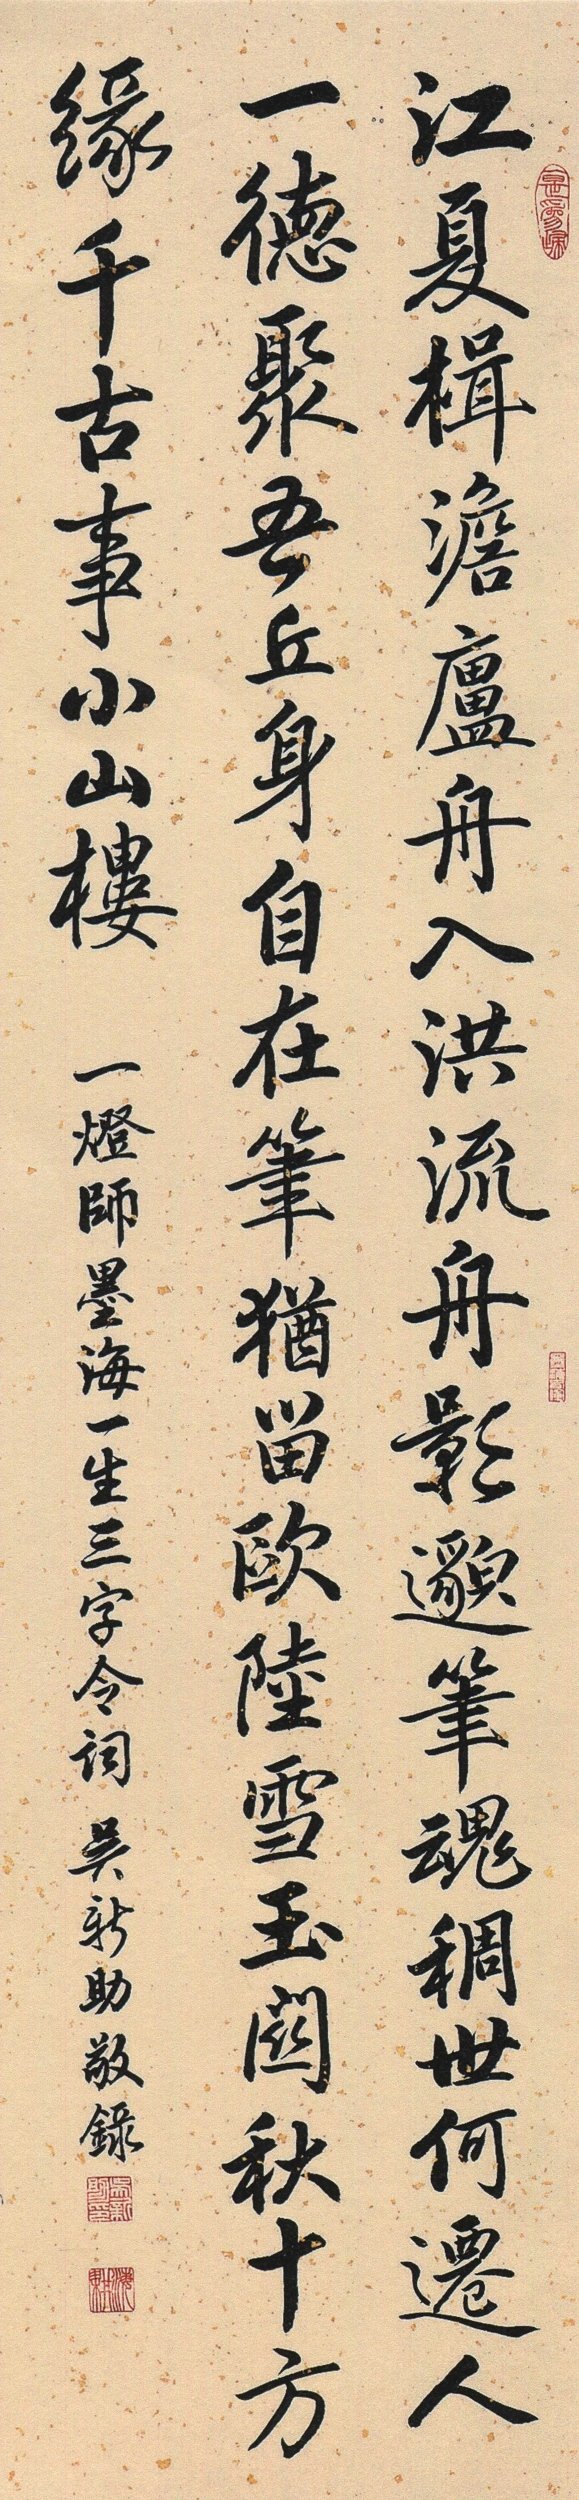 江夏楫澹廬舟入洪流舟影邈筆魂稠世何遷人
一德聚吾丘身自在筆猶留歐陸雪玉關秋十方
緣千古事小山樓
一燈師墨海一生三字令詞 吳新助敬錄
吳新助印